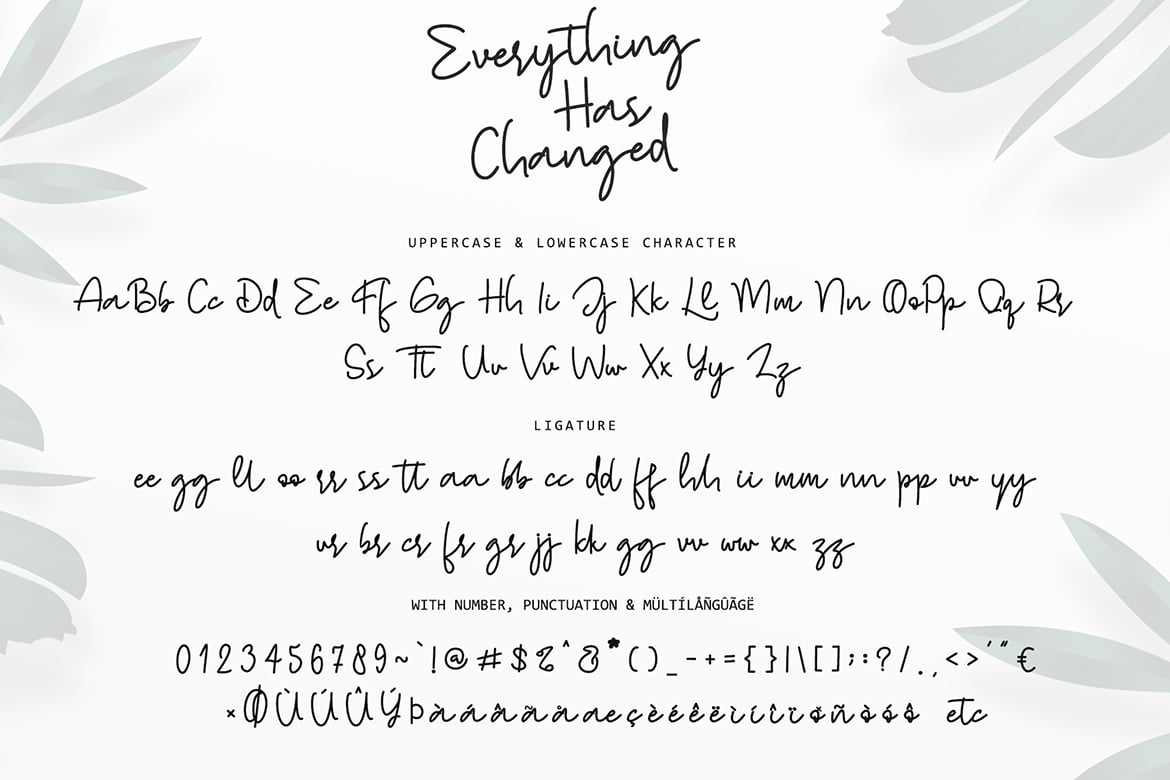 Everything
Has
Changed
UPPERCASE & LOWERCASE CHARACTER
Aa Bb Cc Dd Ee Ff Gg Hh Ii Jj Kk Ll Mm Nn Oo Pp Qq Rr
Ss Tt Uu Vv Ww Xx Yy Zz
LIGATURE
ee gg ll oo rr ss tt aa bb cc dd ff hh ii mm nn pp uu yy
ur br cr fr gr jj kk qq vv ww xx zz
WITH NUMBER, PUNCTUATION & MÜLTÍLÅÑGÛÃGË
0123456789~`!@#$%^&*()_-+={}|\[];:?/.,<>'"€
×ØÙÚÛÝÞàáâãåæçèéêëìíîïðñòóô etc